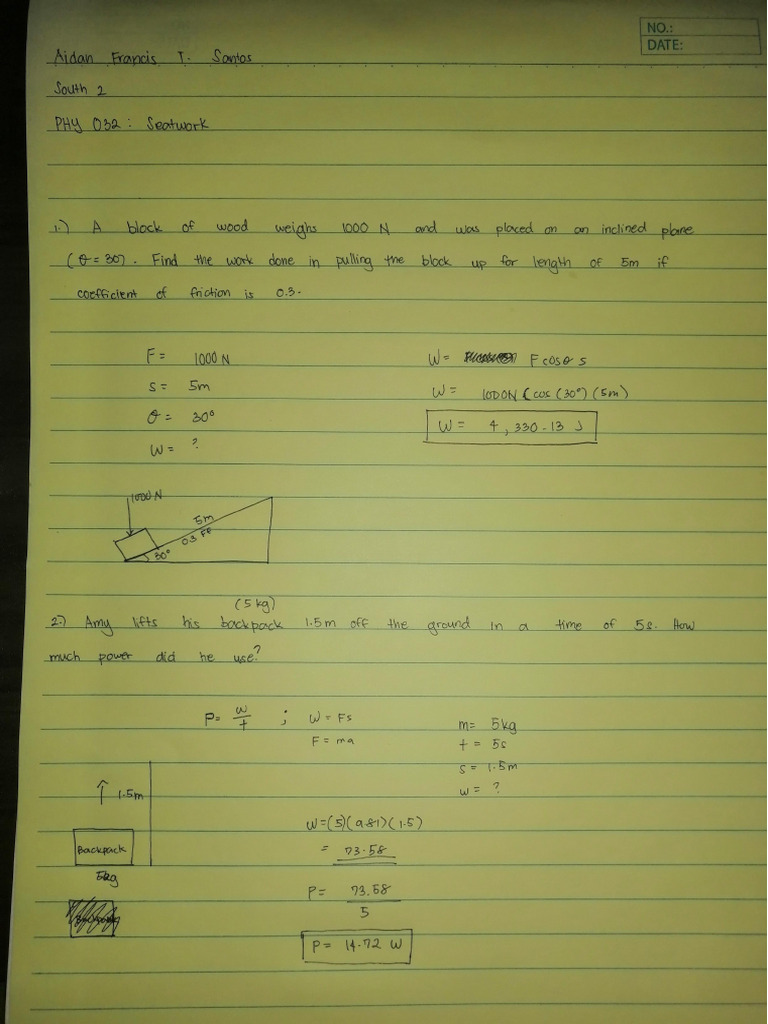 NO.:
DATE:
Aidan Francis T. Santos
South 2
PHY 032 : Seatwork
1.) A block of wood weighs 1000 N and was placed on an inclined plane
(θ = 30). Find the work done in pulling the block up for length of 5m if
coefficient of friction is 0.3.
F = 1000 N
s = 5m
θ = 30°
W = ?
W = F cos θ s
W = 1000N (cos (30°) (5m)
W = 4,330.13 J
1000 N
5m
0.3 Ff
30°
(5 kg)
2.) Amy lifts his backpack 1.5m off the ground in a time of 5s. How
much power did he use?
P = W/t ; W = Fs
F = ma
m = 5kg
t = 5s
s = 1.5m
w = ?
↑ 1.5m
Backpack
5kg
W = (5)(9.81)(1.5)
= 73.58
P = 73.58
5
P = 14.72 W